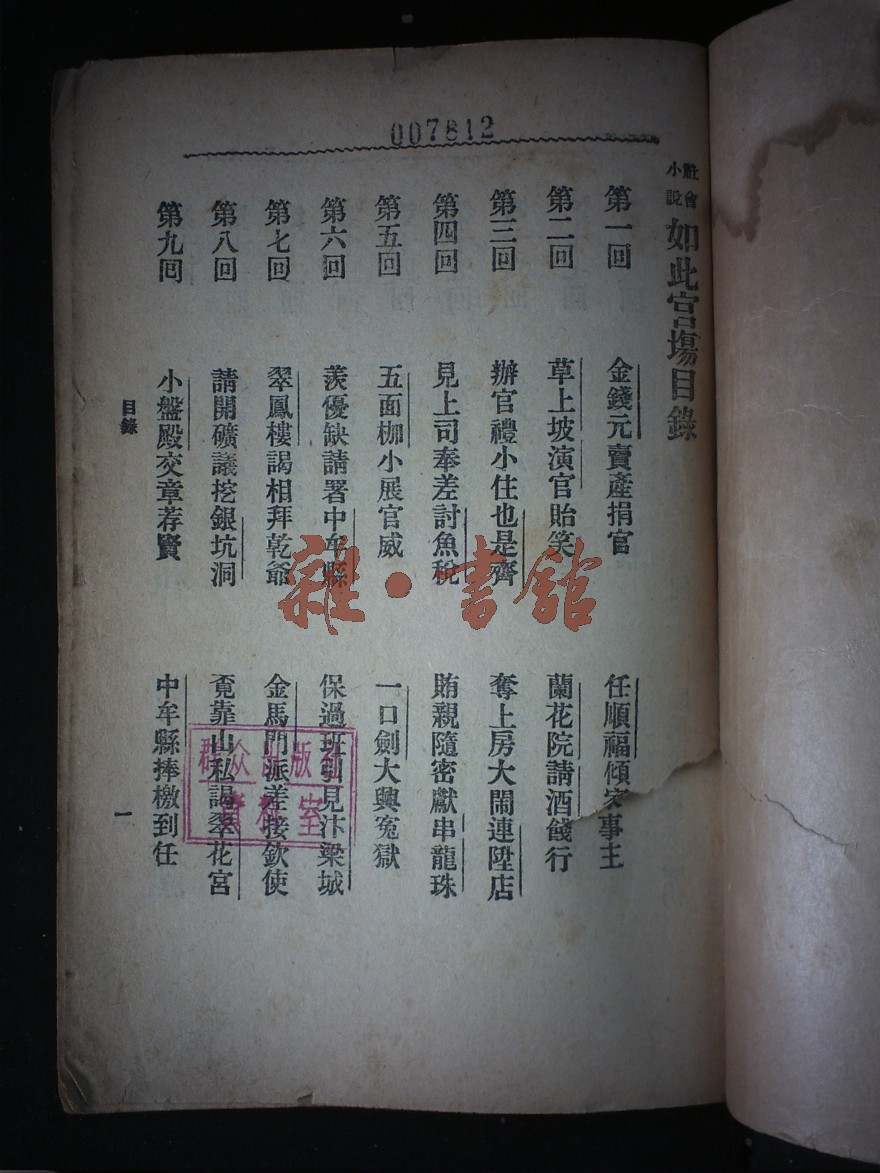 007812
社會小說 如此官塲目錄
第一回 金錢元賣產捐官 任順福傾家事主
第二回 草上坡演官貽笑 蘭花院請酒餞行
第三回 辦官禮小住也是齋 奪上房大鬧連陞店
第四回 見上司奉差討魚稅 賄親隨密獻串龍珠
第五回 五面枷小展官威 一口劍大興冤獄
第六回 羨優缺請署中牟縣 保過班引見汴梁城
第七回 翠鳳樓謁相拜乾爺 金馬門派差接欽使
第八回 請開礦議挖銀坑洞 覔靠山私謁翠花宮
第九回 小盤殿交章荐賢 中牟縣捧檄到任
目錄
一
雜·書館
群众出版社
資料室